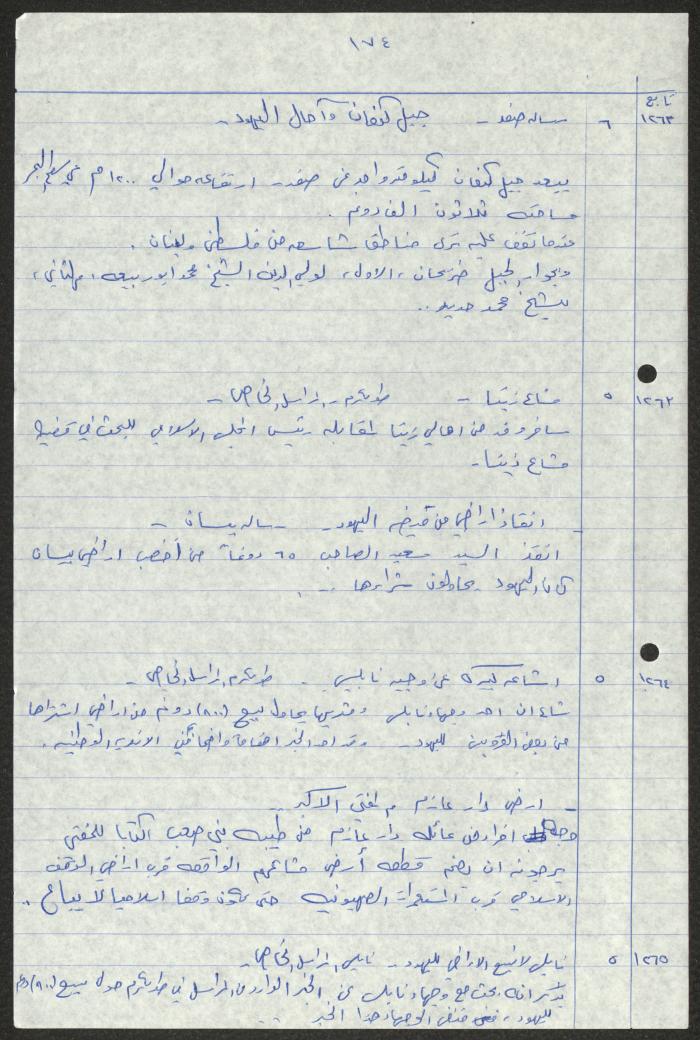 ١٧٤
تابع
١٢٦٣ ٦ رسالة صفد - جبل كنعان وآمال اليهود -
يبعد جبل كنعان كيلومتر واحد عن صفد - ارتفاعه حوالي ١٢٠٠ م عن سطح البحر
مساحته ثلاثون الف دونم .
عندما تقف عليه ترى مناطق شاسعه من فلسطين ولبنان .
وبجوار الجبل ضريحان ، الاول ، لولي الله الشيخ محمد ابو ربيعه ، والثاني ،
للشيخ محمد حديد ..
١٢٦٢ ٥ مشاع زيتا - طولكرم - لمراسل الخاص -
سافر وفد من اهالي زيتا لمقابلة رئيس المجلس الاسلامي للبحث في قضية
مشاع زيتا -
- انقاذ اراضي من قبضة اليهود - رسالة بيسان -
انقذ السيد سعيد الصاحب ٦٥ دونماً من أخصب اراضي بيسان
كان اليهود يحاولون شراءها ..
١٢٦٤ ٥ اشاعه كبيرة عن وجيه نابلسي - طولكرم لمراسل الخاص -
شاع ان احد وجهاء نابلس ومثريها يحاول بيع (٨٠٠) دونم من اراضي اشتراها
من بعض القرويين لليهود -
- ارض دار عازم والمفتي الاكبر -
وجه افراد من عائلة دار عازم من طيبة بني صعب كتابا للمفتي
يرجونه ان يضم قطعة أرض مشاعهم الواقعه قرب اراضي الوقف
الاسلامي قرب المستعمرات الصهيونيه حتى تكون وقفا اسلاميا لا يباع ..
١٢٦٥ ٥ نابلس لا تبيع الاراضي لليهود - نابلس لمراسل الخاص -
يذكر انه بحث مع وجهاء نابلس عن الخبر الوارد من المراسل في طولكرم حول بيع (٨٠٠) دونم
لليهود ، فنفى الوجهاء هذا الخبر ..